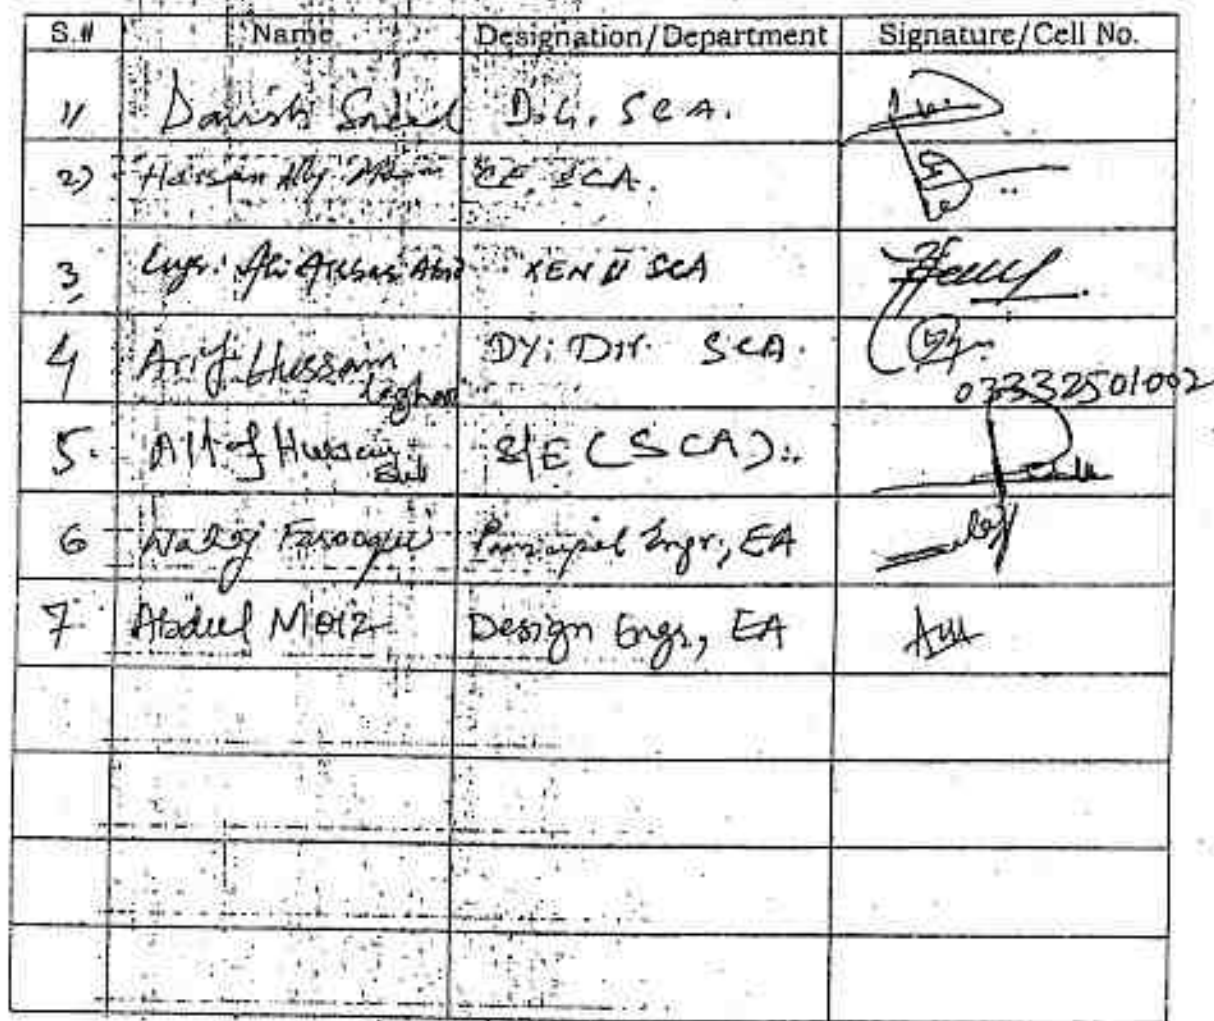 S.# Name Designation/Department Signature/Cell No.
1) Danish Saeed D.G. SCA.
2) Hassan Ally CE, SCA.
3, Engr: Ali Abbas XEN II SCA
4 Arif Hussain DY: Dir. SCA.
Leghari 03332501002
5. Altaf Hussain S/E (SCA).
6 Farooqui Principal Engr., EA
7. Abdul Moiz Design Engr, EA